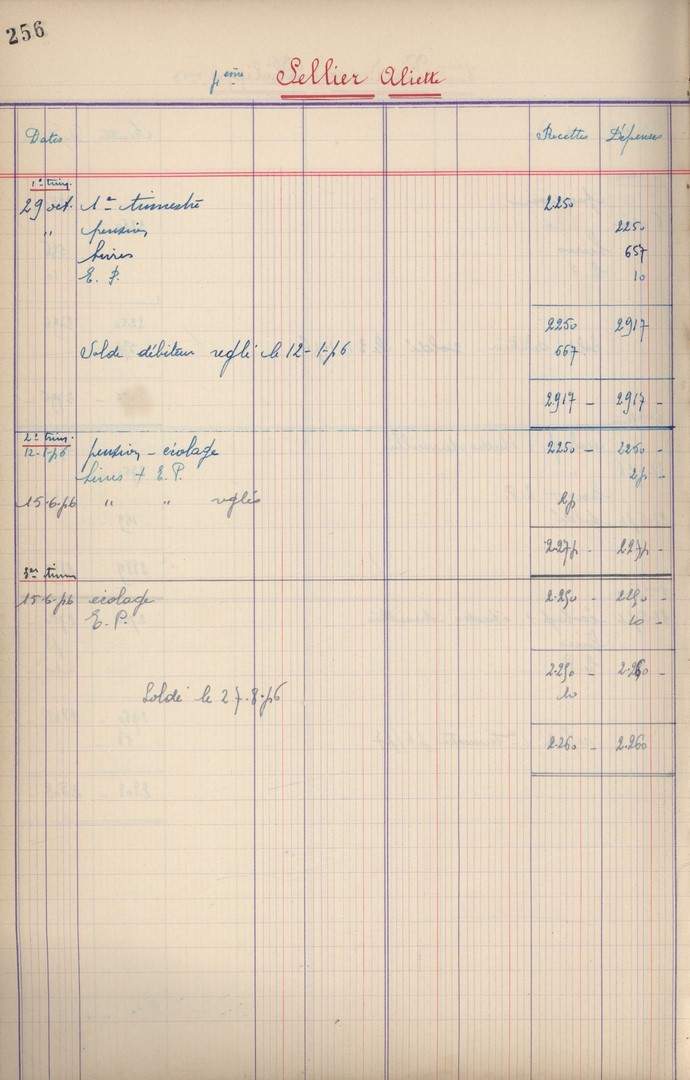 256
4ème Sellier Aliette
Dates Recettes Dépenses
1er trim.
29 oct. 1er trimestre 2.250
" pension 2250
Livres 657
E. P. 10
2250 2917
Solde débiteur reglé le 12-1-56 667
2.917 - 2.917 -
2e trim.
12-1-56 pension - écolage 2250 - 2250 -
Livres + E. P. 25 -
15-6-56 " " réglé 25
2.275 - 2.275 -
3er trim
15-6-56 écolage 2.250 - 2250 -
E. P. 10 -
2.250 - 2.260 -
Soldé le 27-8-56 10
2.260 - 2.260